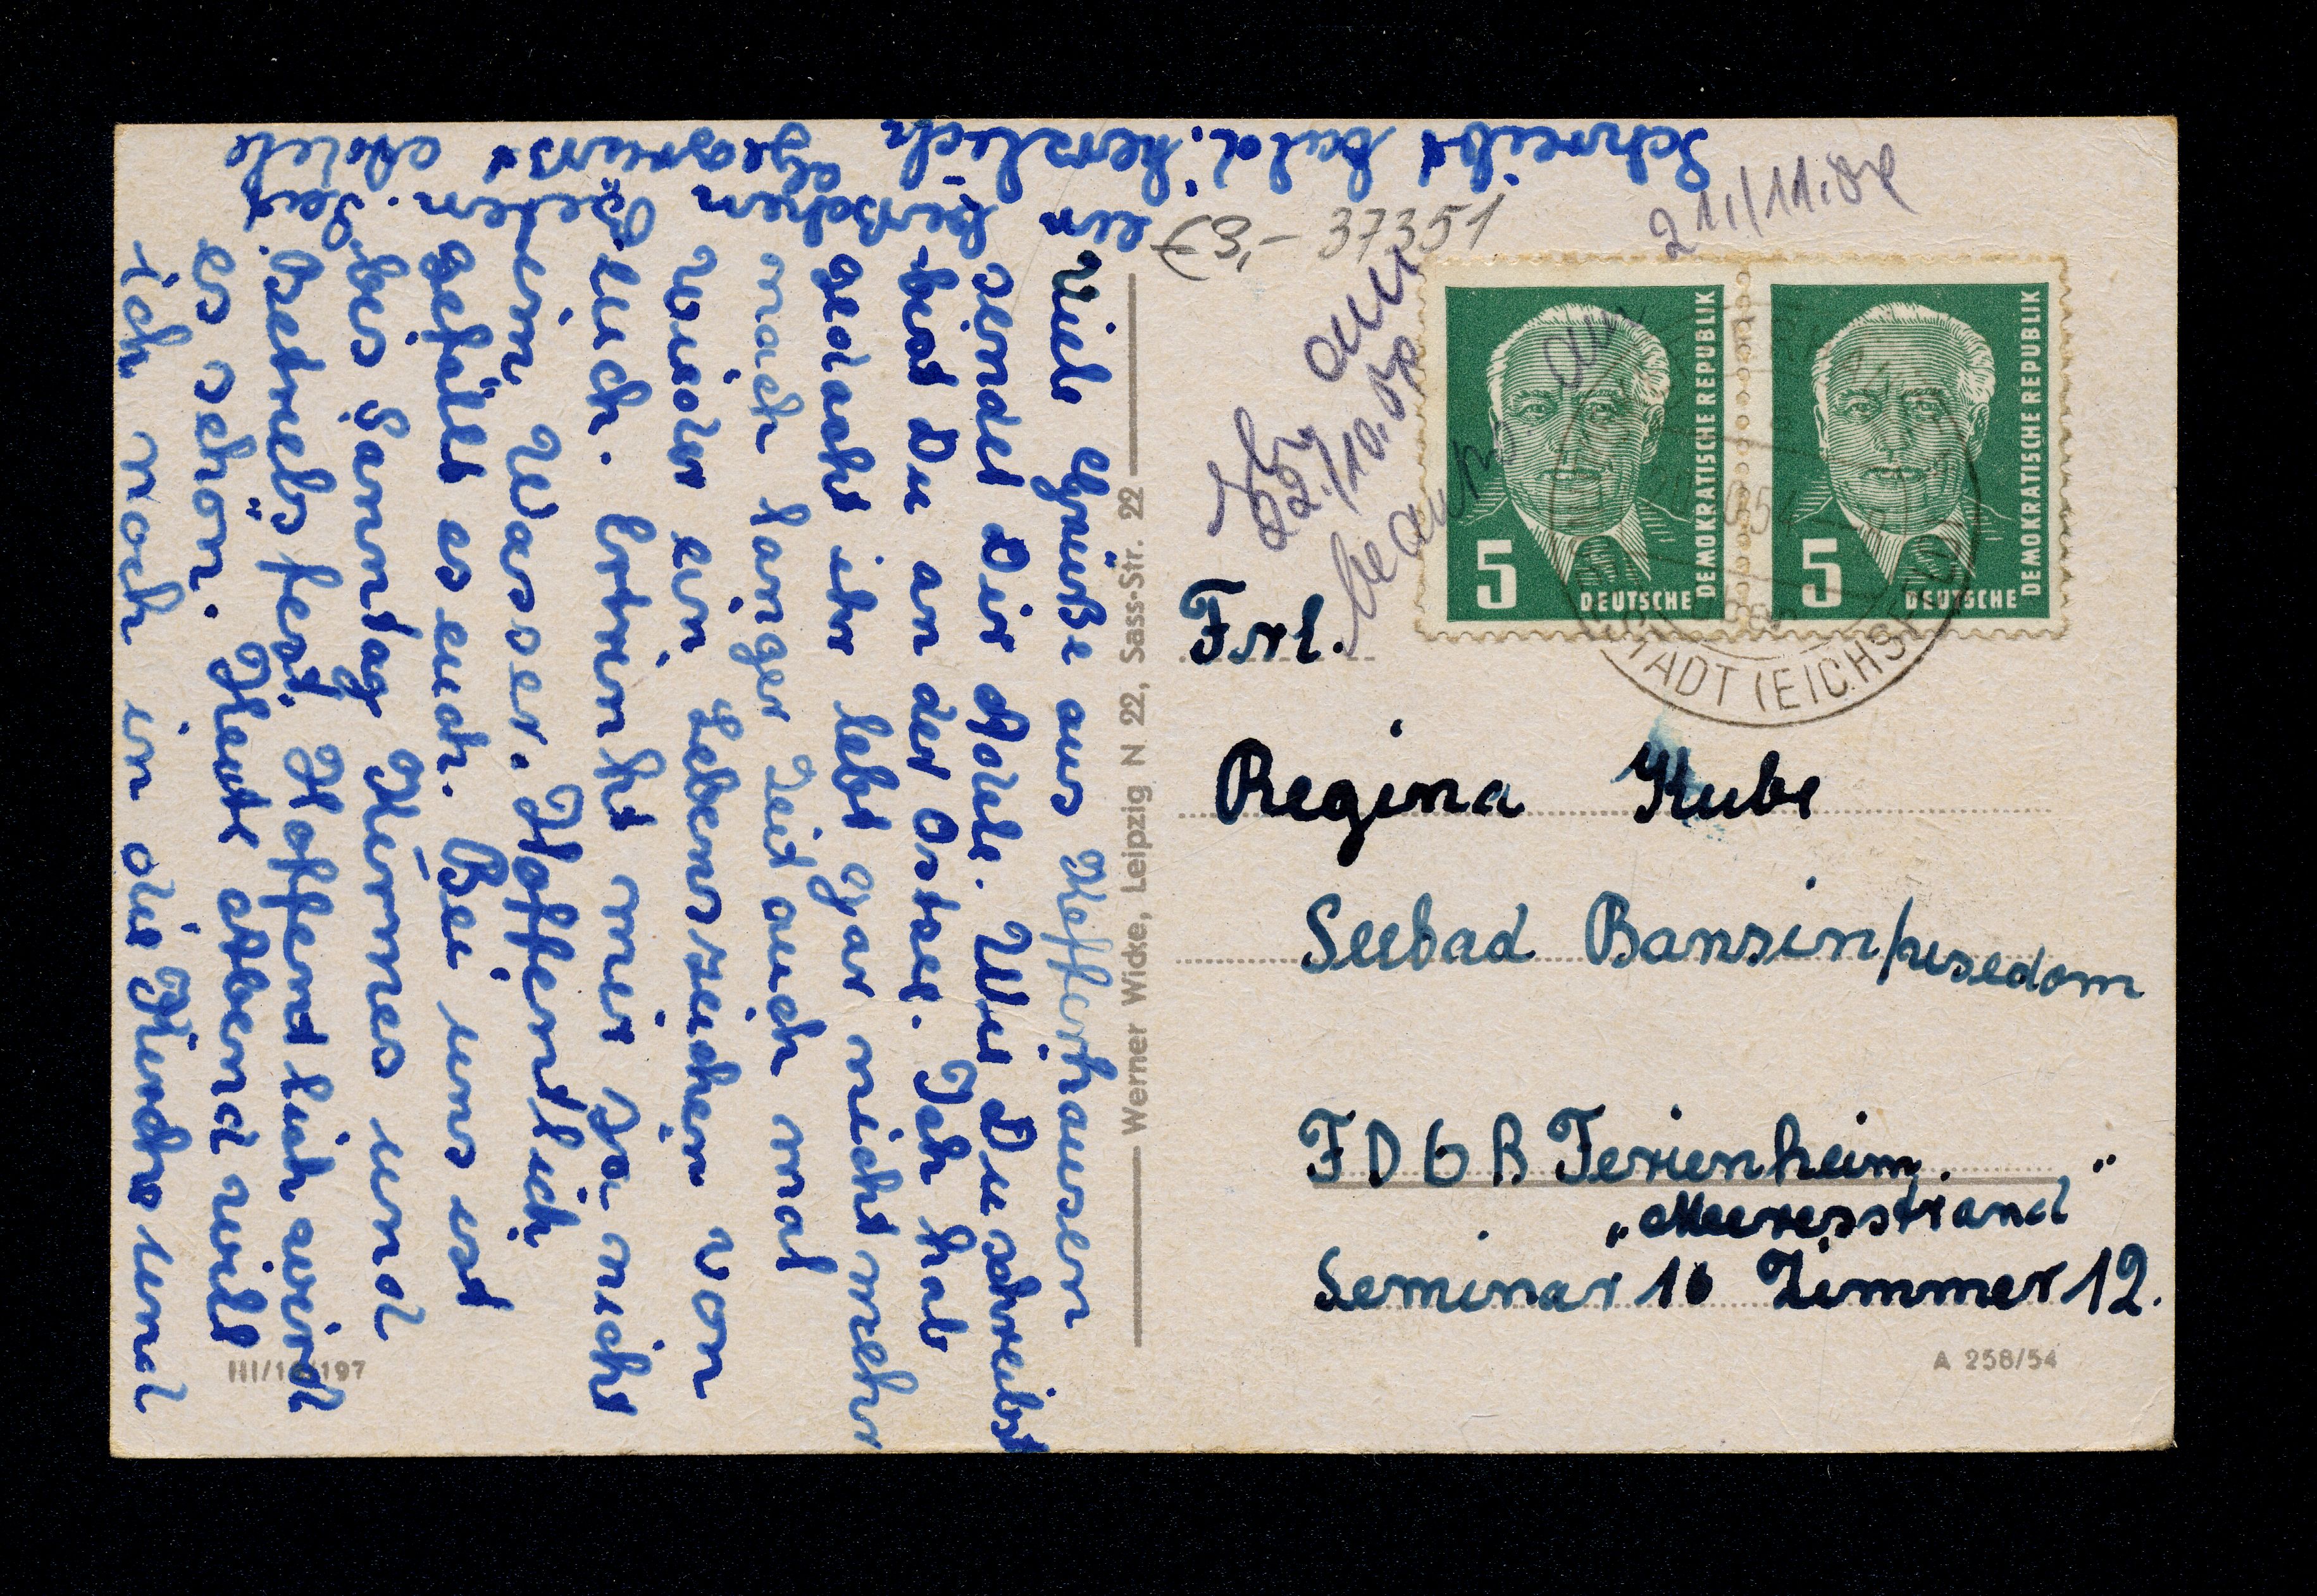 Viele Grüße aus Kefferhausen
sendet Dir Adele. Wie Du schreibst
bist Du an der Ostsee. Ich hab
gedacht ihr lebt gar nicht mehr
nach langer Zeit auch mal
wieder ein Lebenszeichen von
Euch. Ertrinkt mir ja nicht
im Wasser. Hoffentlich
gefällt es euch. Bei uns ist
bis Sonntag Kirmes und
Betriebsfest. Hoffentlich wird
es schön. Heute Abend will
ich noch in die Kirche und
ein
beten. Seid
gegrüßt Adele
Schreibt bald. herzlich
€3,- 37351
21./11.
am
22./10.
beantw. am
5
DEUTSCHE
DEMOKRATISCHE REPUBLIK
5
DEUTSCHE
DEMOKRATISCHE REPUBLIK
STADT (EICHSFELD)
Frl.
Regina Kube
Seebad Bansin/Usedom
FDGB Ferienheim.
„Meeresstrand"
Seminar 16 Zimmer 12.
Werner Wicke, Leipzig N 22, Sass-Str. 22
III/18/197
A 258/54